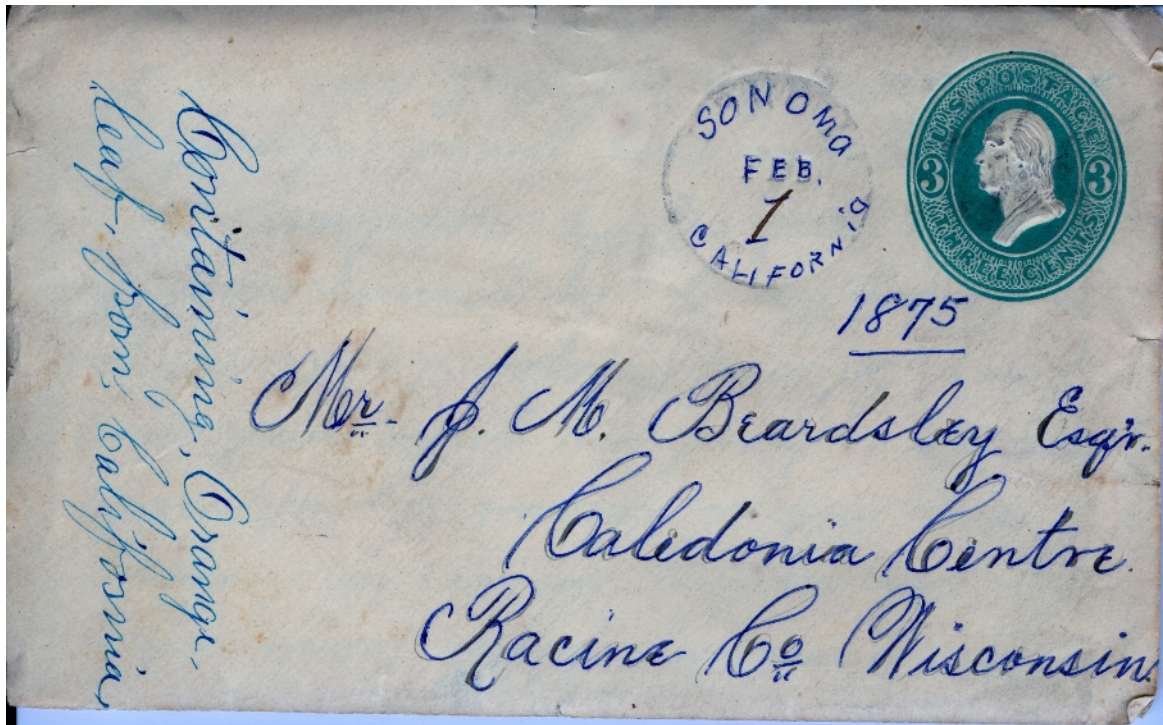 Containing, Orange-
leaf, from, California,
SONOMA
FEB.
1
CALIFORNIA
1875
U.S. POSTAGE
3 3
THREE CENTS
Mr. J. M. Beardsley Esq'r.
Caledonia Centre.
Racine Co Wisconsin.